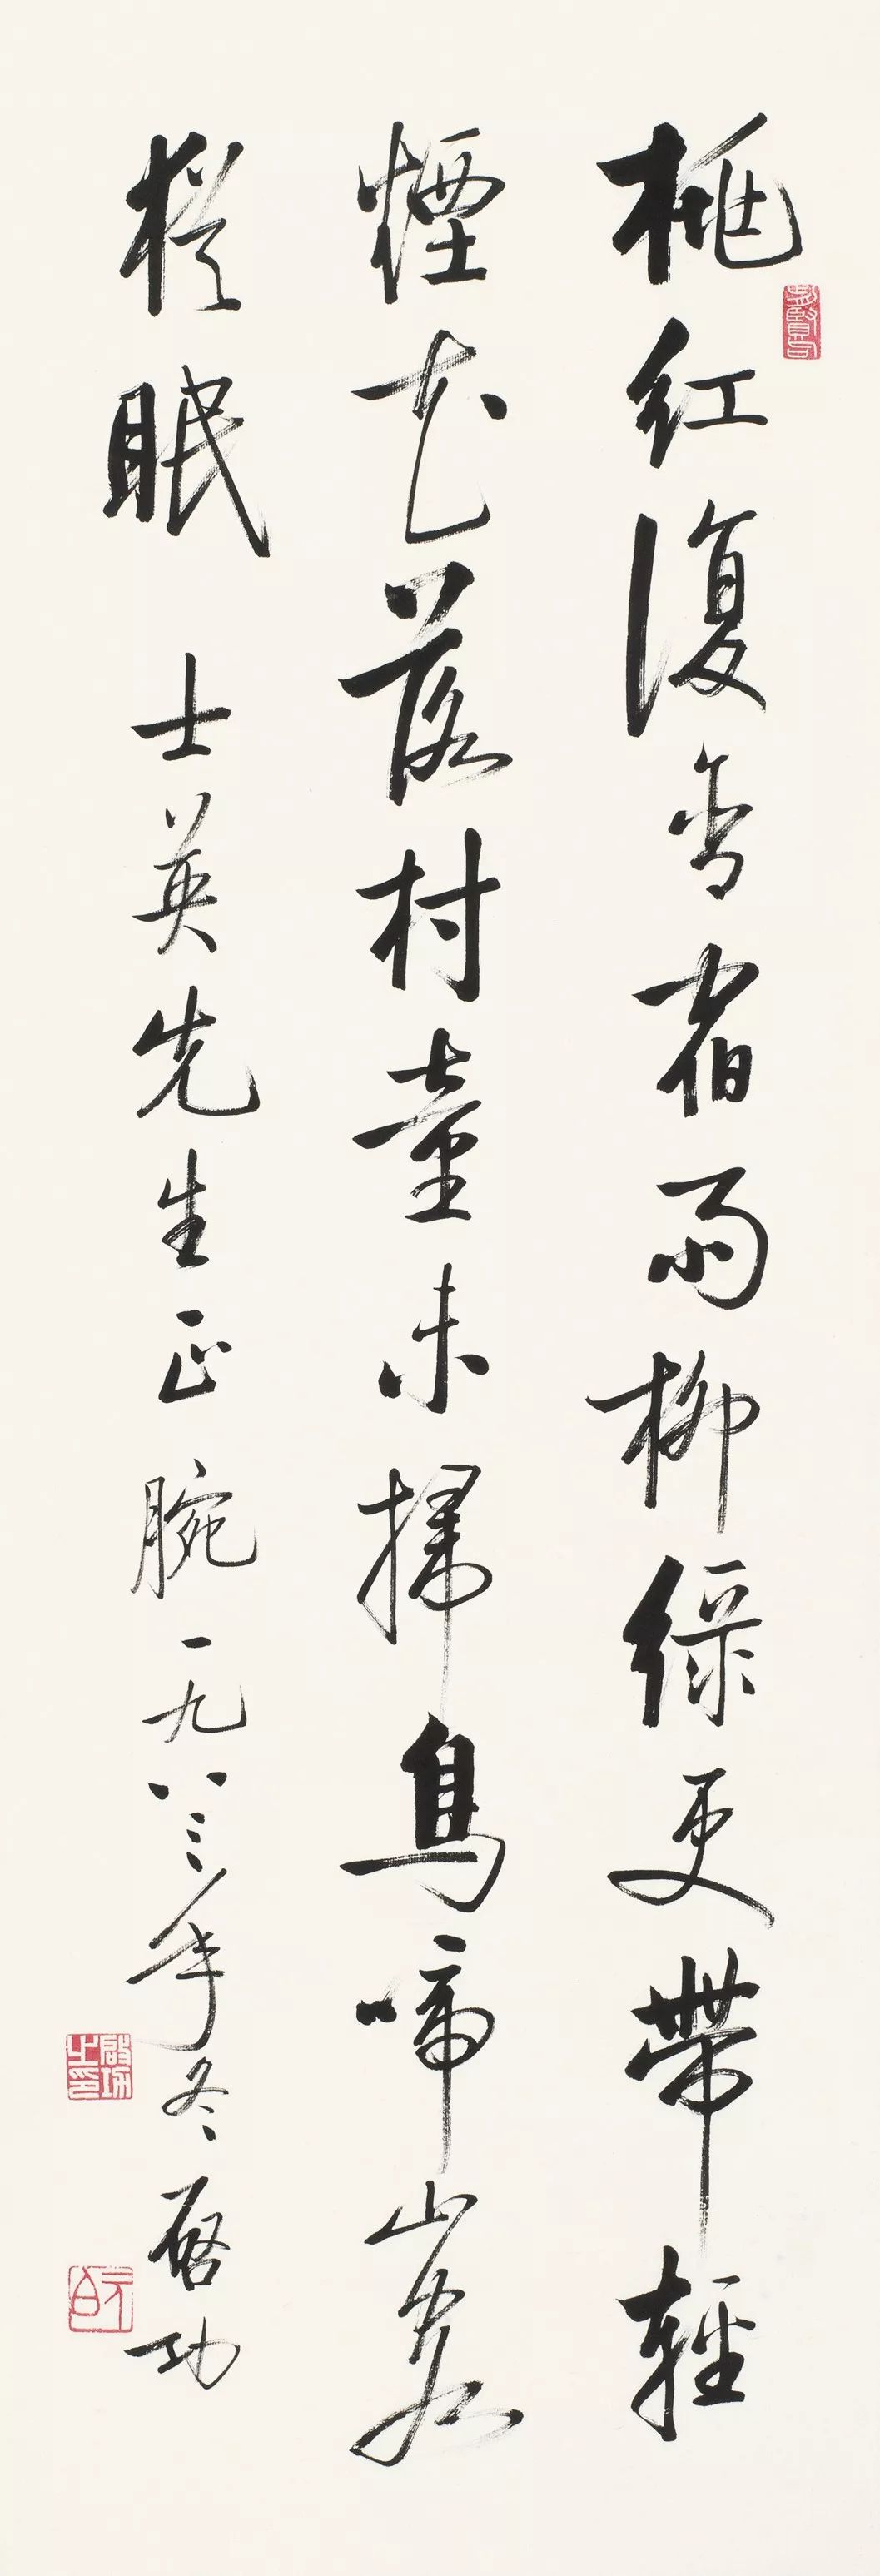 桃紅復含宿雨柳綠更帶輕
煙花落村童未掃鳥啼山客
猶眠 士英先生正腕 一九八三年冬 啟功
啟功之印
元白